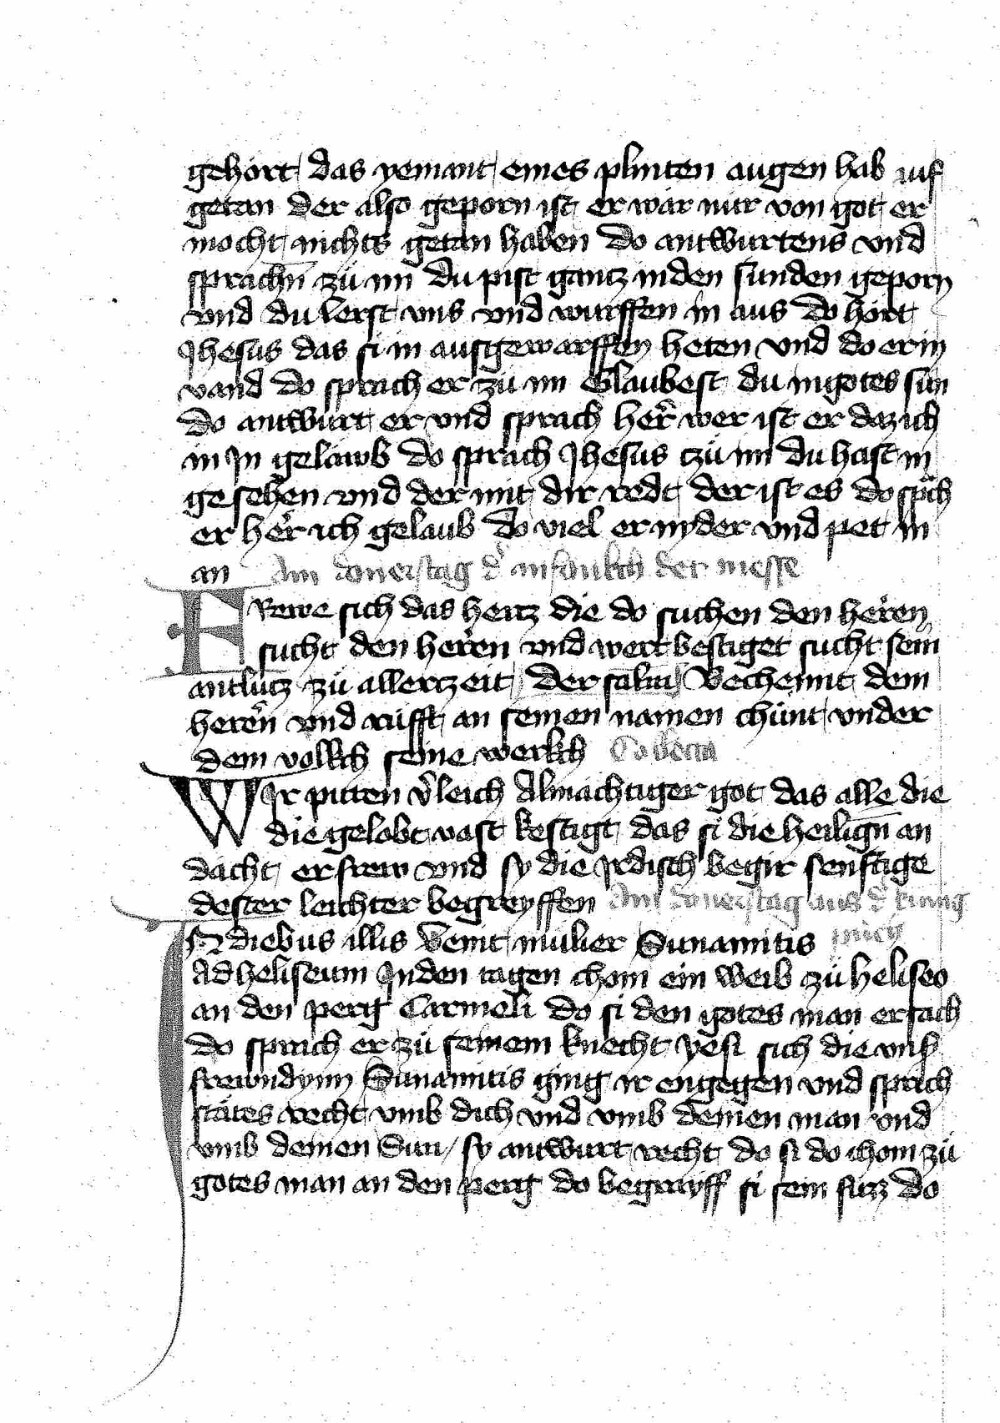 gehört das yemant eines plinten augen hab auf
getan der also geporn ist er wär nür von got er
möcht nichts getan haben do antwürtens vnd
sprachn̄ zü im du pist gantz in den sünden geporn
vnd du lerst vns vnd würffen in aus do hört
Jhesus das si in ausgewarffen heten vnd do er in
vand do sprach er zü im Glaubest du in gotes sun
do antwürt er vnd sprach her wer ist er daz ich
in in gelawb do sprach Jhesus tzü im du hast in
gesehen vnd der mit dir redt der ist es do sprach
er her ich gelaub do viel er nyder vnd pet in
an Am donerstag d' anfankch der messe
FRewe sich das hertz die do suchen den heren
sucht den heren vnd wert bestiget sucht sein
antlütz zü aller tzeit der salm Bechennt dem
heren vnd rüfft an seinen namen chünt vnder
dem volkch seine werkch Collecta
WIr pitten v'leich Almächtiger got das alle die
die gelobt vast kestigt das si die heilign̄ an
dacht erfrew vnd sy die irdisch begir senftige
dester leichter begreyffen Am donerstag aus d' künig
IN diebus illis Venit mulier Sunamitis püch
Ad heliseum In den tagen chom ein weib zü heliseo
an den perg Carmeli do si den gotes man ersach
do sprach er zü seinem knecht yesi sich die
frewndynn Sunamitis ging ir engegen vnd sprich
stätes recht vmb dich vnd vmb deinen man vnd
vmb deinen Sun / sy antwurt recht do si do chom zü
gotes man an den perg do begrayff si sein füzz do